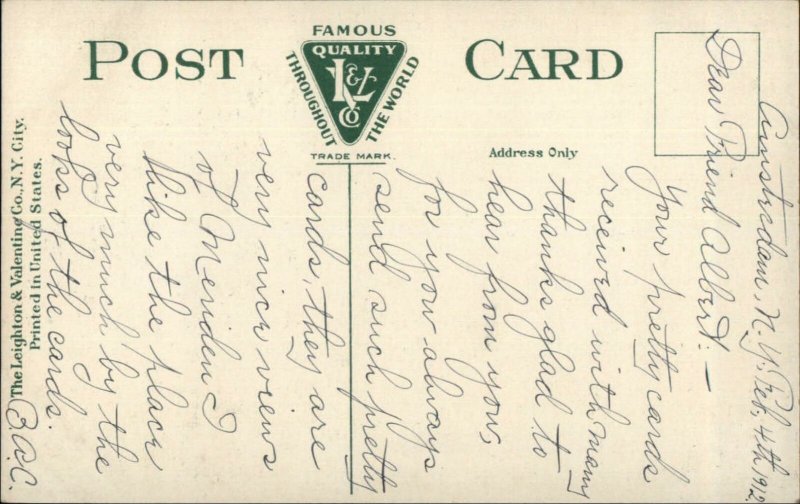 POST CARD
FAMOUS
QUALITY
THROUGHOUT
THE WORLD
L&V
Co
TRADE MARK.
Address Only
The Leighton & Valentine Co., N.Y. City.
Printed in United States.
Amstrsdam, N.Y. Feb. 4th 1912
Dear Friend Albert:—
Your pretty cards
received with many
thanks glad to
hear from you,
for you always
send such pretty
cards, they are
very nice views
of Meriden I
like the place
very much by the
looks of the cards.
B.A.C.